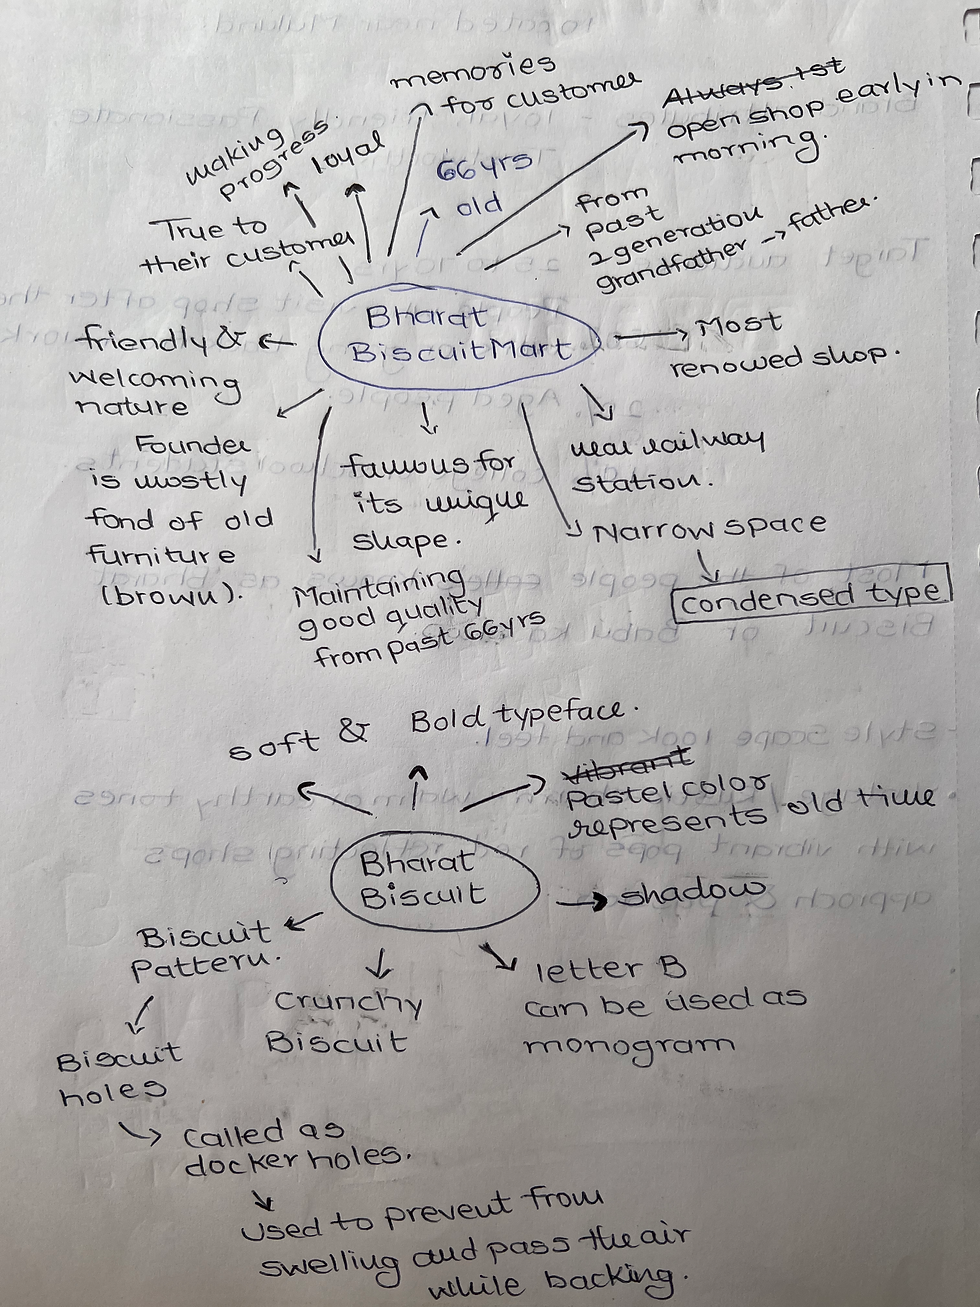 memories
for customer
Always 1st
open shop early in
morning.
making
progress.
loyal
66 yrs
old
from
past
2 generation
grandfather → father.
True to
their customer
Bharat
Biscuit Mart
friendly &
welcoming
nature
Most
renowed shop.
Founder
is mostly
fond of old
furniture
(brown).
famous for
its unique
shape.
near railway
station.
Narrow space
condensed type
Maintaining
good quality
from past 66yrs
soft & Bold typeface.
Vibrant
Pastel color
represents old time
Bharat
Biscuit
shadow
Biscuit
Pattern.
Crunchy
Biscuit
letter B
can be used as
monogram
Biscuit
holes
called as
docker holes.
used to prevent from
swelling and pass the air
while backing.